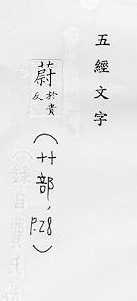 五經文字
蔚於貴反
(艹部,P.28)